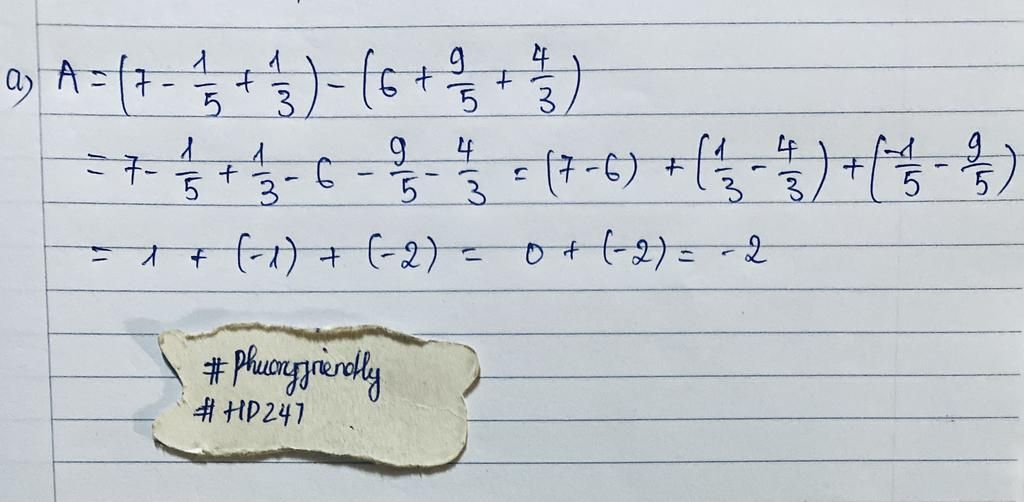 a) A = (7 - 1/5 + 1/3) - (6 + 9/5 + 4/3)
= 7 - 1/5 + 1/3 - 6 - 9/5 - 4/3 = (7 - 6) + (1/3 - 4/3) + (-1/5 - 9/5)
= 1 + (-1) + (-2) = 0 + (-2) = -2
# Phuongfriendly
# HD247